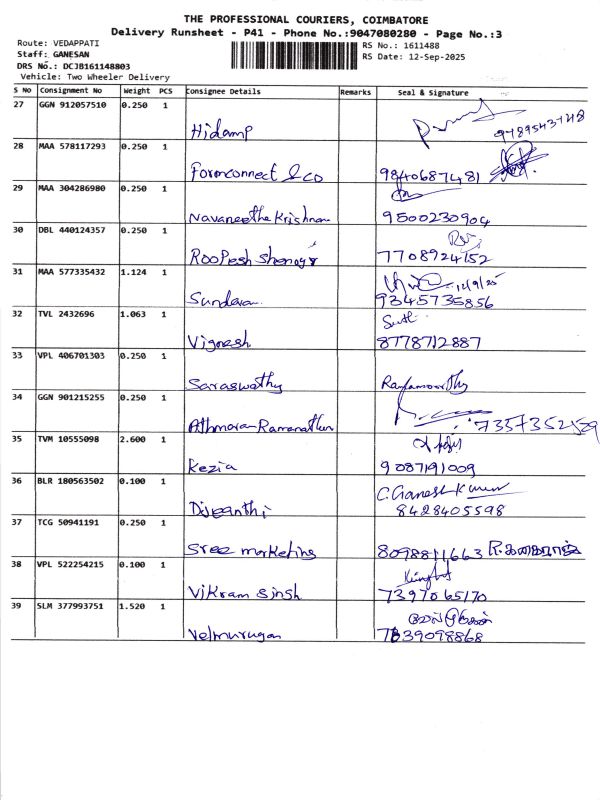 THE PROFESSIONAL COURIERS, COIMBATORE
Delivery Runsheet - P41 - Phone No.:9047080280 - Page No.:3
Route: VEDAPPATI
RS No.: 1611488
Staff: GANESAN
RS Date: 12-Sep-2025
DRS No.: DCJB161148803
Vehicle: Two Wheeler Delivery
S No Consignment No Weight PCS Consignee Details Remarks Seal & Signature
27 GGN 912057510 0.250 1
Hidamp 9789543748
28 MAA 578117293 0.250 1
Formconnect & co 9840687481
29 MAA 304286980 0.250 1
Navaneetha Krishnan 9500230904
30 DBL 440124357 0.250 1
Roopesh Shenoy 7708924152
31 MAA 577335432 1.124 1
12/9/25
Sundaram 9345735856
32 TVL 2432696 1.063 1
Vignesh 8778712887
33 VPL 406701303 0.250 1
Saraswathy Ramamoorthy
34 GGN 901215255 0.250 1
Athmaram Ramanathan 7357352529
35 TVM 10555098 2.600 1
Kezia 9087191009
36 BLR 180563502 0.100 1
C. Ganesh Kumar
8428405598
37 TCG 50941191 0.250 1
Sree marketing 8098811663
38 VPL 522254215 0.100 1
Vikram Singh 7397065170
39 SLM 377993751 1.520 1
வேல்முருகன்
Velmurugan 7339098868